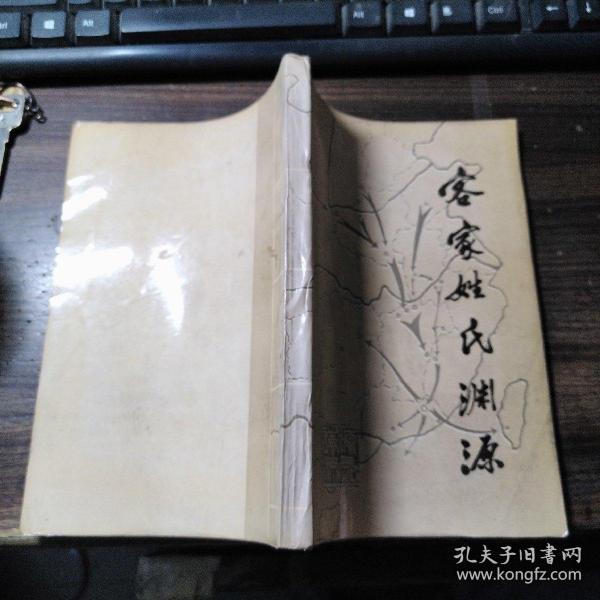 客家姓氏渊源
孔夫子旧書网
www.kongfz.com
Alt
Alt
Ctrl